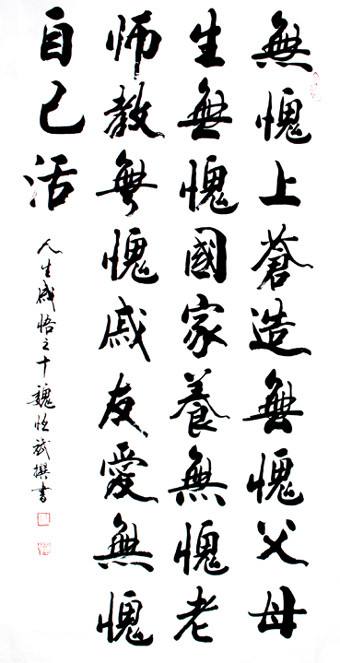 無愧上蒼造無愧父母
生無愧國家養無愧老
師教無愧戚友愛無愧
自己活
人生感悟之十魏斌撰書